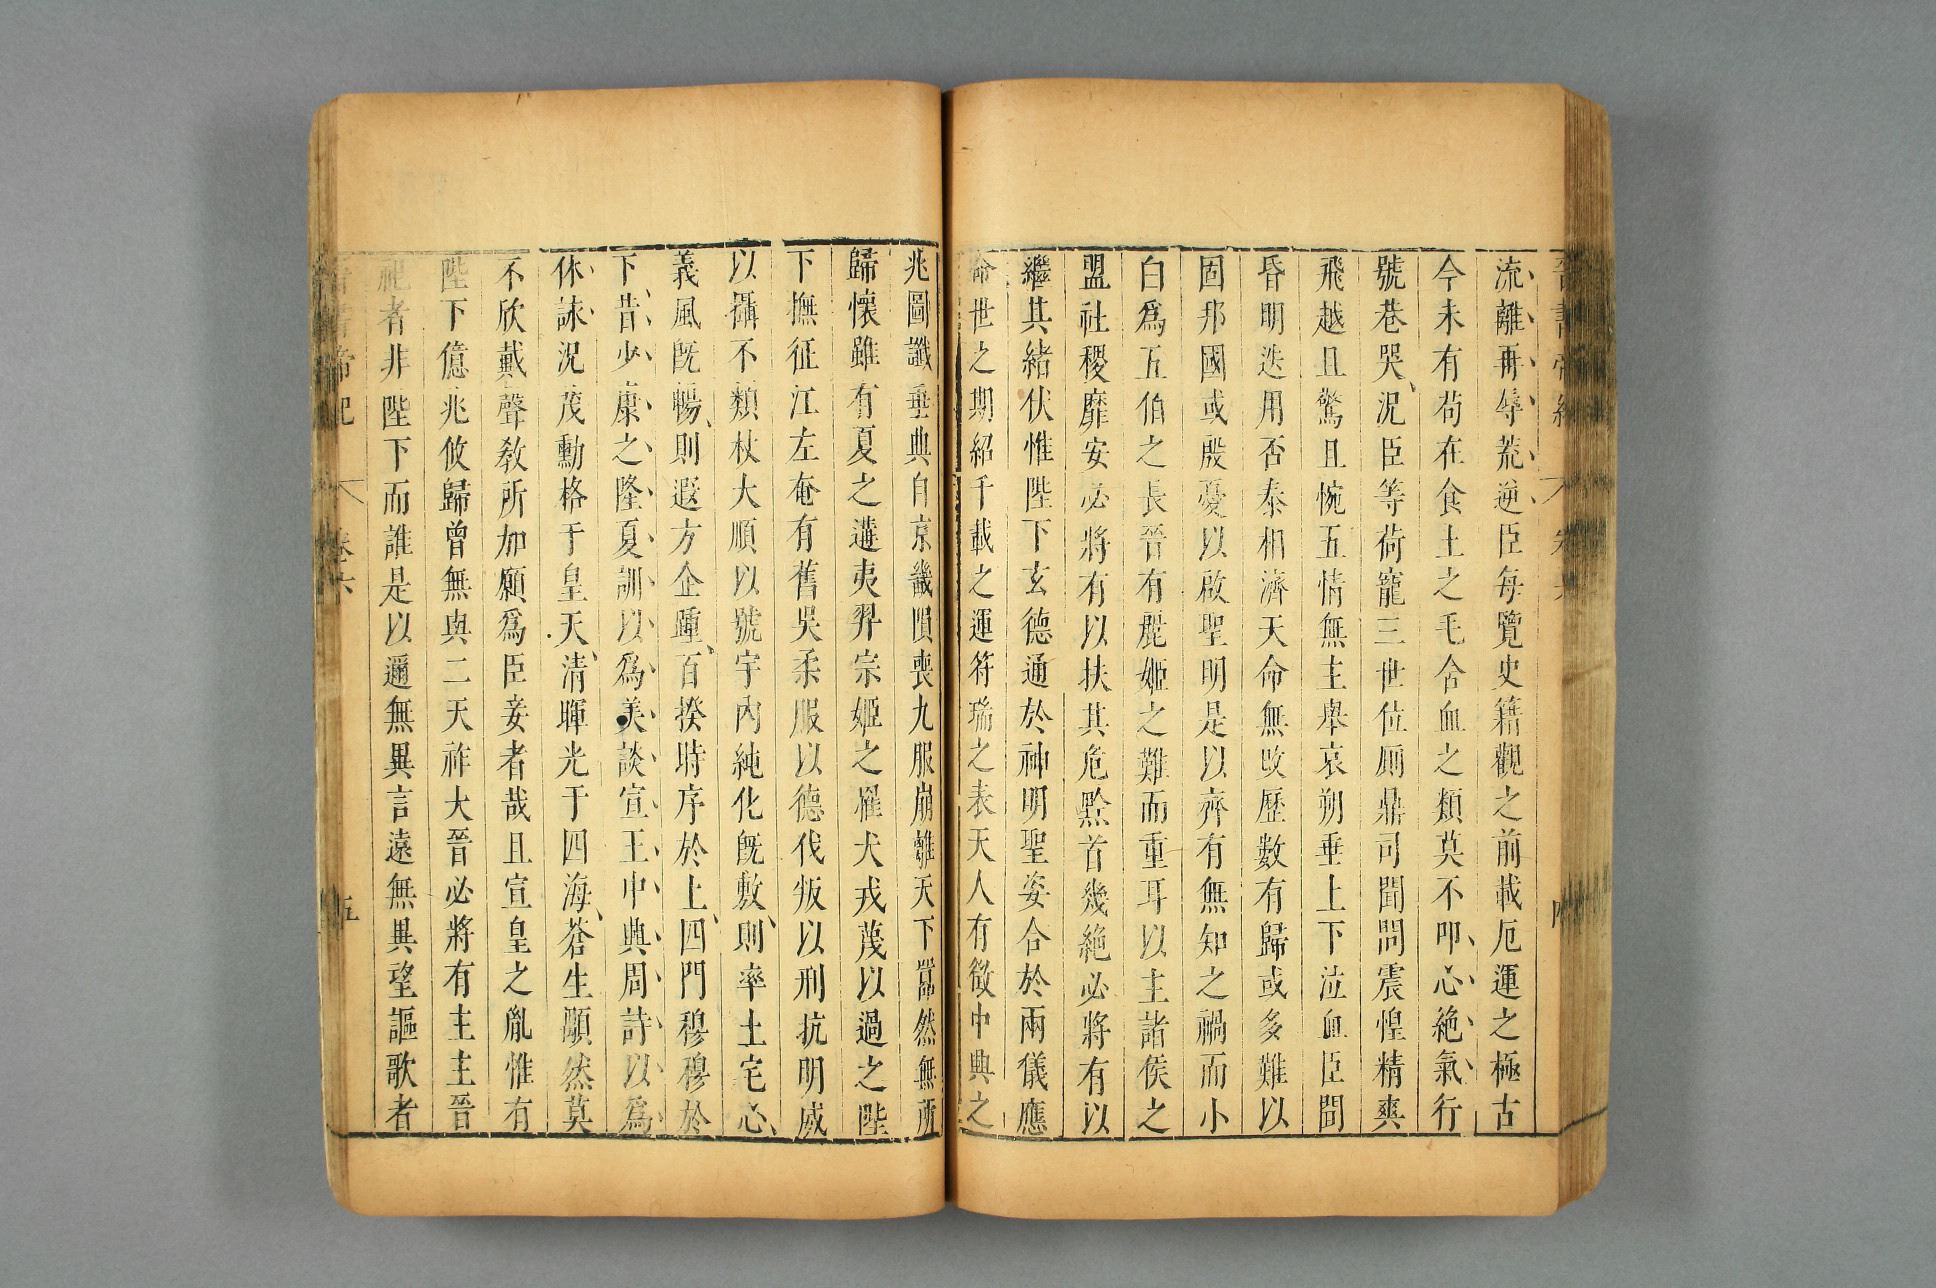 晉書帝紀 卷六
流離再辱荒逆臣每覽史籍觀之前載厄運之極古
今未有苟在食土之毛含血之類莫不叩心絶氣行
號巷哭況臣等荷寵三世位厠鼎司聞問震惶精爽
飛越且驚且惋五情無主舉哀朔垂上下泣血臣聞
昏明迭用否泰相濟天命無改歷數有歸或多難以
固邦國或殷憂以啟聖明是以齊有無知之禍而小
白爲五伯之長晉有麗姬之難而重耳以主諸侯之
盟社稷靡安必將有以扶其危黔首幾絶必將有以
繼其緒伏惟陛下玄德通於神明聖姿合於兩儀應
命世之期紹千載之運符瑞之表天人有徵中興之
兆圖讖垂典自京畿隕喪九服崩離天下嚣然無所
歸懷雖有夏之遘夷羿宗姬之罹犬戎蔑以過之陛
下撫征江左奄有舊吳柔服以德伐叛以刑抗明威
以攝不類杖大順以號宇內純化旣敷則率土宅心
義風旣暢則遐方企踵百揆時序於上四門穆穆於
下昔少康之隆夏訓以爲美談宣王中興周詩以爲
休詠況茂勳格于皇天清暉光于四海蒼生顒然莫
不欣戴聲敎所加願爲臣妾者哉且宣皇之胤惟有
陛下億兆攸歸曾無與二天祚大晉必將有主主晉
祀者非陛下而誰是以邇無異言遠無異望謳歌者
晉書帝紀 卷六 五